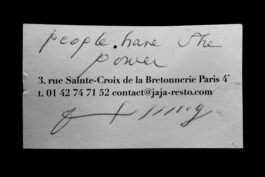 people have the
power
3, rue Sainte-Croix de la Bretonnerie Paris 4e
t. 01 42 74 71 52 contact@jaja-resto.com